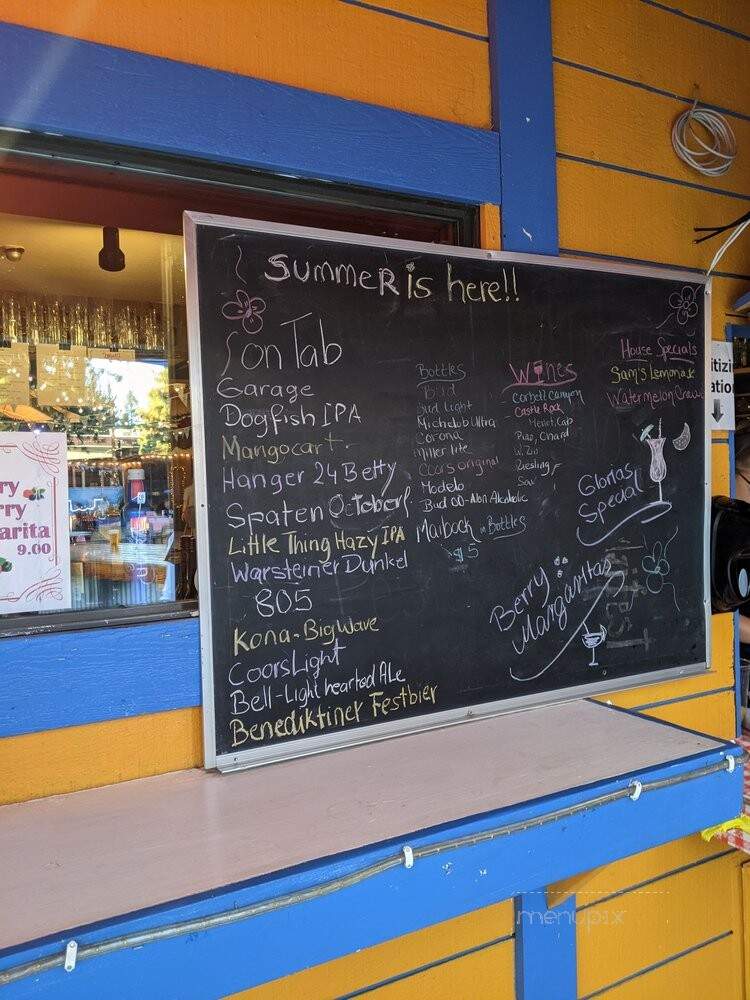 Summer is here!!
on Tab
Garage
Dogfish IPA
Mangocart
Hanger 24 Betty
Spaten Octoberf
Little Thing Hazy IPA
Warsteiner Dunkel
805
Kona-Big Wave
Coors Light
Bell-Light hearted Ale
Benediktiner Festbier
Bottles
Bud
Bud Light
Michelob Ultra
Corona
Miller lite
Coors original
Modelo
Bud 00-Non Alcoholic
Maibock in Bottles
$5
Wines
Corbett Canyon
Castle Rock
Merlot, Cab
Pino, Chard
W. Zin
Riesling
Sau
House Specials
Sam's Lemonade
Watermelon Craw
Glorias
Special
Berry
Margaritas
ry
rry
arita
9.00
itizi
atio
menupix